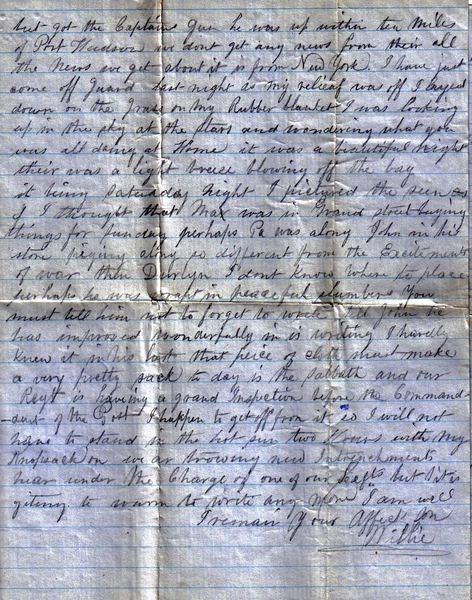 but got the Captain Gun he was up within ten miles
of Port Hudson we dont get any news from their all
the News we get about it is from New York I have just
come off Guard last night as my releaf was off I layed
down on the Grass on my Rubber blanket I was looking
up in the sky at the stars and wondering what you
was all doing at Home it was a beautiful night
their was a light breeze blowing off the bay
it being Saturday Night I pictured the seen
I thought that Max was in Grand street buying
things for Sunday perhaps Pa was along John in his
store along so different from the Excitements
of war then I dont know where to place
perhaps he was wrapt in peaceful slumbers You
must tell him not to forget to write tell John he
has improved wonderfully in is writing I hardly
knew it in his last that peice of cloth must make
a very pretty sack to day is the Sabbath and our
Regt is having a grand Inspection before the Command-
-ant of the Post I happen to get off from it so I will not
have to stand in the hot sun two hours with my
Knapsack on we ar throwing new Intrenchments
near under the Charge of one of our Capts but it is
giting to warm to write any more I am well
I remain Your Affect Son
Willie